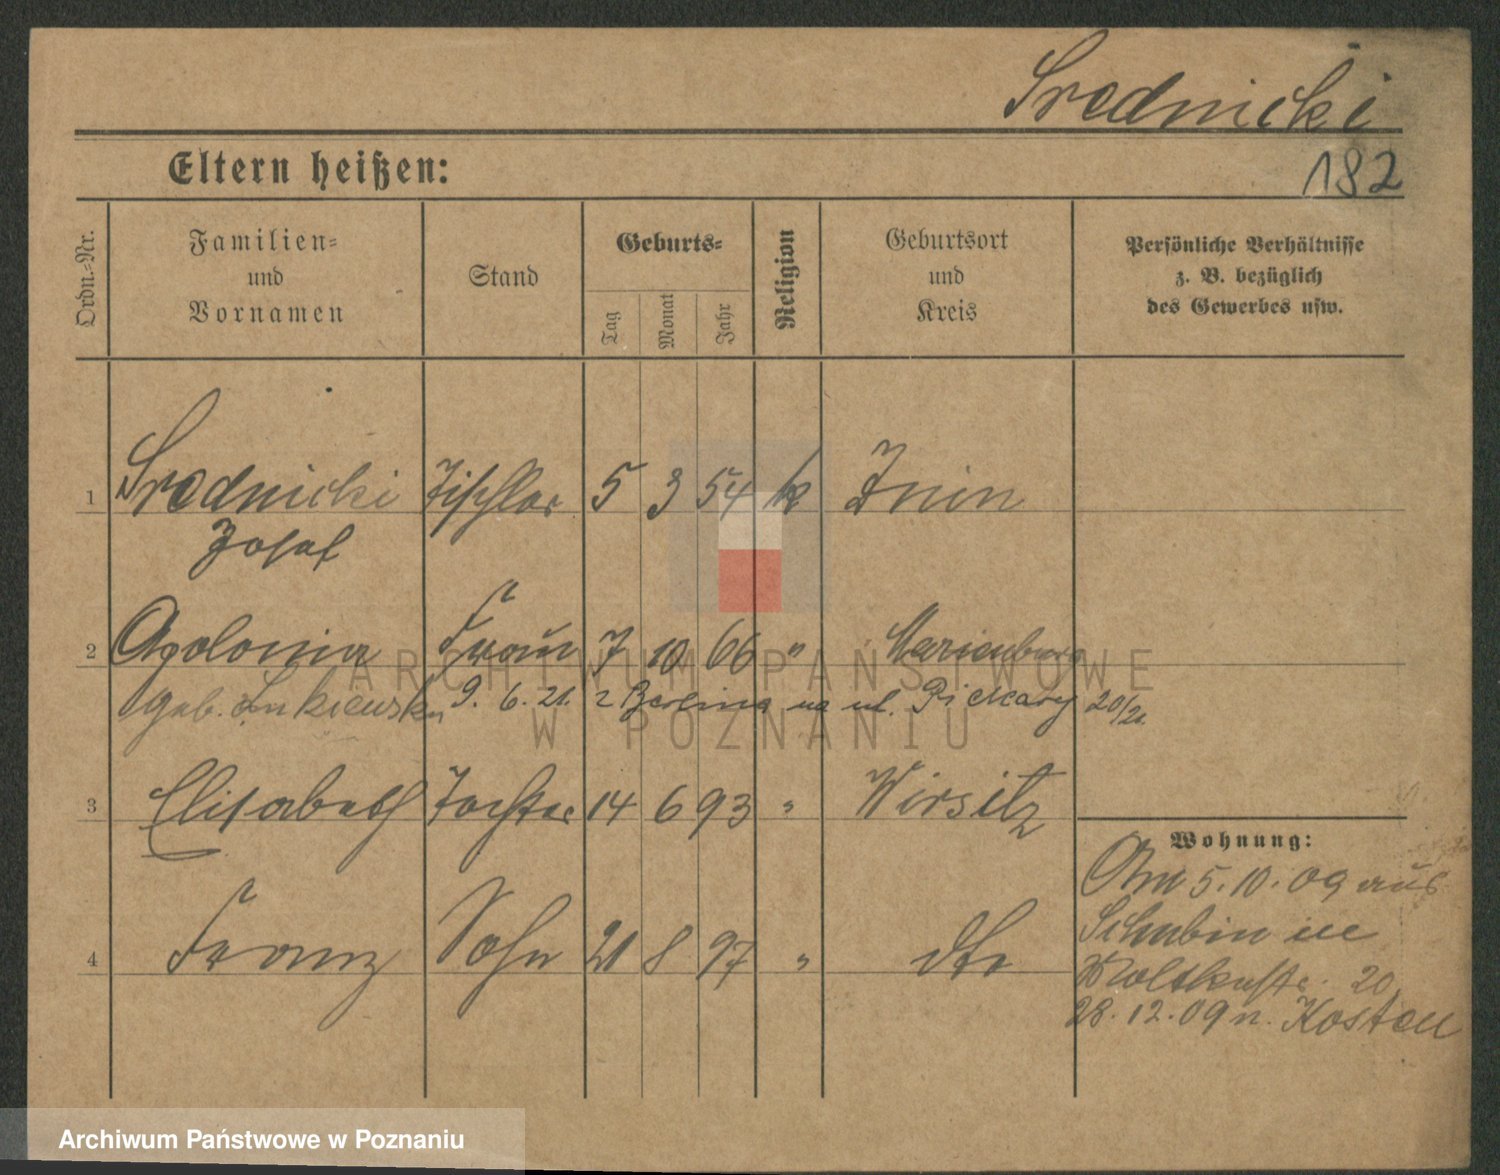 Srednicki
Eltern heißen:
182
Ordn.=Nr.
Familien=
und
Vornamen
Stand
Geburts=
Tag
Monat
Jahr
Religion
Geburtsort
und
Kreis
Persönliche Verhältnisse
z. B. bezüglich
des Gewerbes usw.
1 Srednicki Tischler 5 3 54 k Znin
Josef
2 Apolonia Frau 7 10 66 " Marienburg
geb. 9. 6. 21. z Berlina na ul. Piekary 20/21.
3 Elisabeth Tochter 14 6 93 " Wirsitz
4 Franz Sohn 21 8 97 " dto
Wohnung:
Am 5.10.09 aus
Schubin in
Moltkestr. 20
28.12.09 n. Kosten
ARCHIWUM PAŃSTWOWE
W POZNANIU
Archiwum Państwowe w Poznaniu